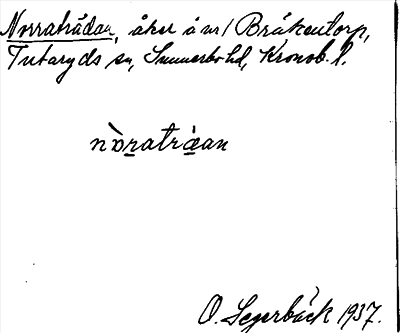 Norratrådan, åker å nr 1 Bråkentorp,
Tutaryds sn, Sunnerbo hd, Kronob. l.
nòratráan
O. Segerbäck 1937.